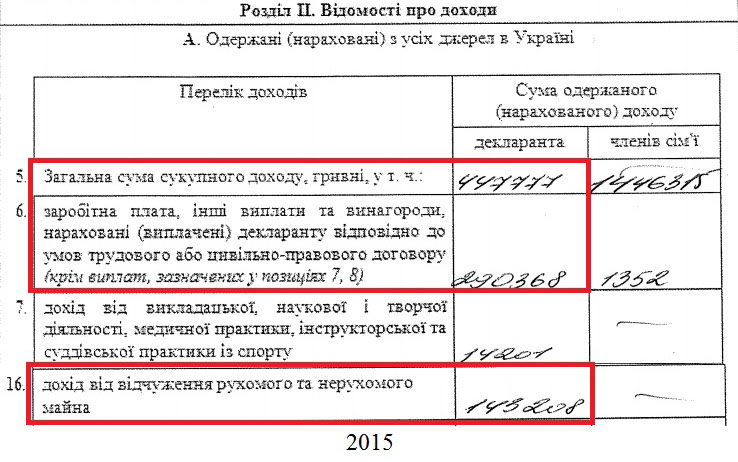 Розділ II. Відомості про доходи
А. Одержані (нараховані) з усіх джерел в Україні
Перелік доходів
Сума одержаного
(нарахованого) доходу
декларанта
членів сім'ї
5. Загальна сума сукупного доходу, гривні, у т. ч.: 447777 1446315
6. заробітна плата, інші виплати та винагороди,
нараховані (виплачені) декларанту відповідно до
умов трудового або цивільно-правового договору
(крім виплат, зазначених у позиціях 7, 8) 290368 1352
7. дохід від викладацької, наукової і творчої
діяльності, медичної практики, інструкторської та
суддівської практики із спорту 14201 —
16. дохід від відчуження рухомого та нерухомого
майна 143208 —
2015